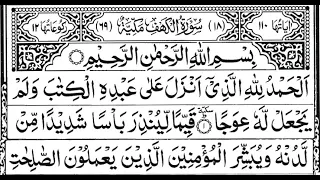 اٰیَاتُهَا ۱۱۰ (۱۸) سُوْرَةُ الْكَهْفِ مَكِّیَّةٌ (۶۹) رُكُوْعَاتُهَا ۱۲
بِسْمِ اللّٰهِ الرَّحْمٰنِ الرَّحِیْمِ
اَلْحَمْدُ لِلّٰهِ الَّذِیْۤ اَنْزَلَ عَلٰی عَبْدِهِ الْكِتٰبَ وَلَمْ
یَجْعَلْ لَّهٗ عِوَجًا ۱ قَیِّمًا لِّیُنْذِرَ بَاْسًا شَدِیْدًا مِّنْ
لَّدُنْهُ وَیُبَشِّرَ الْمُؤْمِنِیْنَ الَّذِیْنَ یَعْمَلُوْنَ الصّٰلِحٰتِ